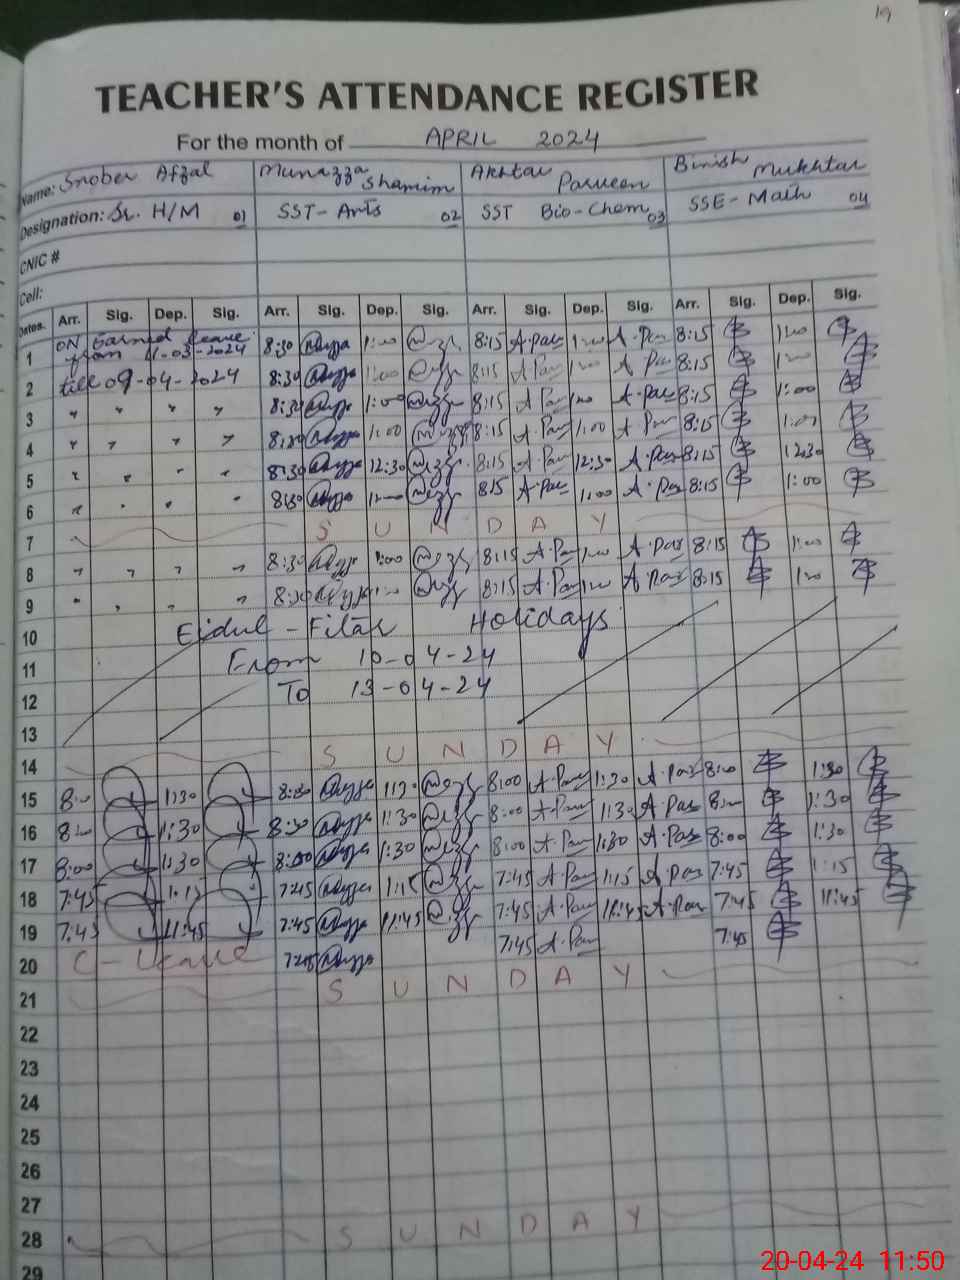 19
TEACHER'S ATTENDANCE REGISTER
For the month of APRIL 2024
Name: Snober Afzal Munazza Shamim Akhtar Parveen Binish Mukhtar
Designation: Sr. H/M 01 SST-Arts 02 SST Bio-Chem 03 SSE-Math 04
CNIC #
Cell:
Dates. Arr. Sig. Dep. Sig. Arr. Sig. Dep. Sig. Arr. Sig. Dep. Sig. Arr. Sig. Dep. Sig.
1 ON Earned leave from 11-03-2024 8:30 1:00 8:15 A.Par 1:00 A.Par 8:15 1:00
2 till 09-04-2024 8:30 1:00 8:15 A.Par 1:00 A.Par 8:15 1:00
3 " " " " 8:30 1:00 8:15 A.Par 1:00 A.Par 8:15 1:00
4 " " " " 8:30 1:00 8:15 A.Par 1:00 A.Par 8:15 1:00
5 " " " " 8:30 12:30 8:15 A.Par 12:30 A.Par 8:15 12:30
6 " " " " 8:30 1:00 8:15 A.Par 1:00 A.Par 8:15 1:00
7 SUNDAY
8 " " " " 8:30 1:00 8:15 A.Par 1:00 A.Par 8:15 1:00
9 " " " " 8:30 1:00 8:15 A.Par 1:00 A.Par 8:15 1:00
10 Eidul-Fitar Holidays
11 From 10-04-24
12 To 13-04-24
13
14 SUNDAY
15 8:00 1:30 8:00 A.Par 1:30 A.Par 8:00 1:30
16 8:00 1:30 8:30 1:30 8:00 A.Par 1:30 A.Par 8:00 1:30
17 8:00 1:30 8:00 1:30 8:00 A.Par 1:30 A.Par 8:00 1:30
18 7:45 1:15 7:45 1:15 7:45 A.Par 1:15 A.Par 7:45 1:15
19 7:45 11:45 7:45 11:45 7:45 A.Par 11:45 A.Par 7:45 11:45
20 C-Leave 7:45 7:45 A.Par 7:45
21 SUNDAY
22
23
24
25
26
27
28 SUNDAY
29
20-04-24 11:50